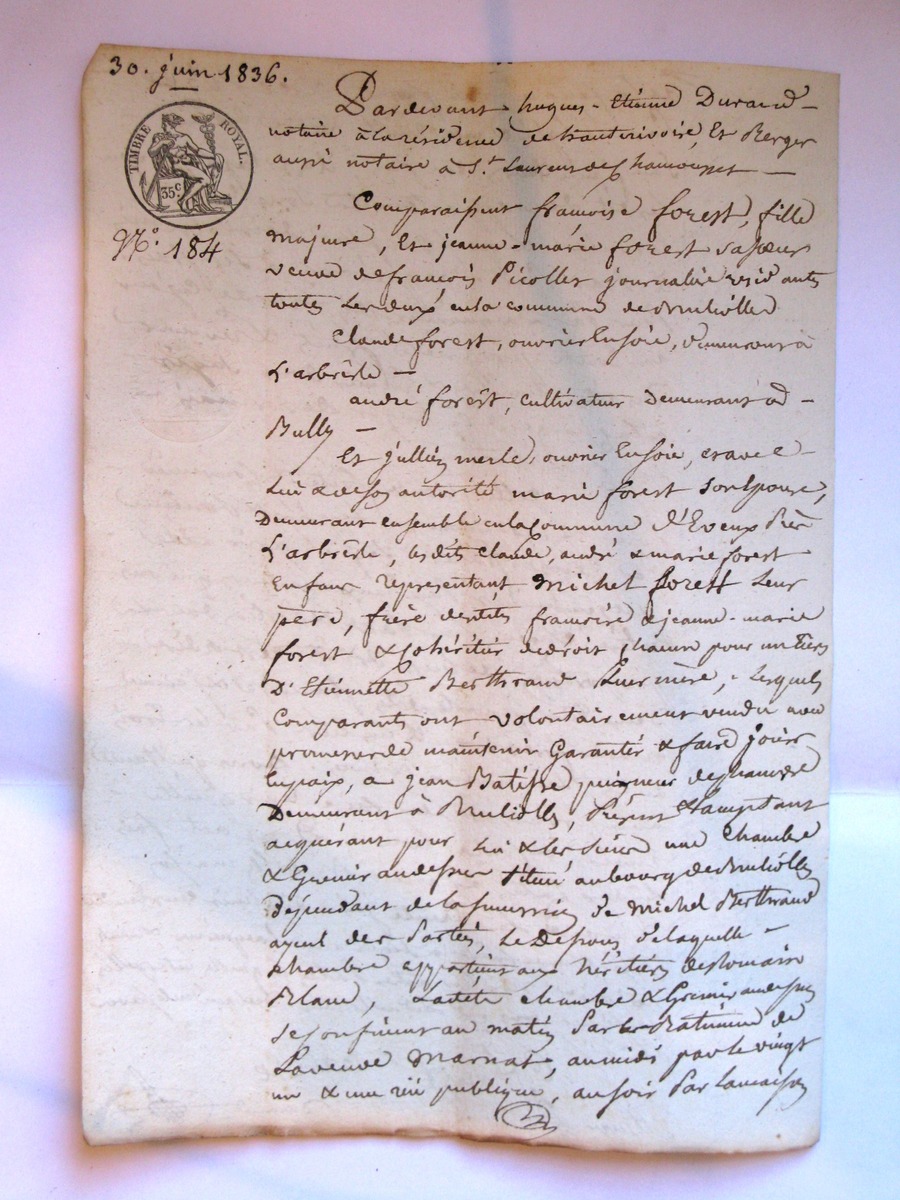 30. juin 1836.
TIMBRE ROYAL.
35c
No. 184
Pardevant hugues-Etienne Durand
notaire à la résidence de hauterivoire, Et Berger
aussi notaire à St. Laurent de Chamousset —
Comparaissent françoise forest, fille
majure, Et jeanne-marie forest sa sœur
veuve de francois Picollet journalière residants
toutes Les deux en la commune de Brulliolle
Claude forest, ouvrier En soie, demeurant à
L'arbrêsle —
andré forest, cultivateur Demeurant à
Bully —
Et jullien merle, ouvrier En soie, et avec
Lui & de son autorité marie forest son Epouse,
Demeurant ensemble en la Commune d'Eveux Près
L'arbrêsle, lesdits Claude, andré & marie forest
Enfans représentant michel forest Leur
père, frère desdites francoise & jeanne-marie
forest & cohéritiers de droit chacun pour un tiers
D'Etiennette Berthraud Leur mère, Lesquels
Comparants ont volontairement vendu avec
promesse de maintenir Garantir & faire jouir
En paix, a jean Batisse peigneur de chanvre
Demeurant à Brulliolles, Présent & acceptant
acquérant pour Lui & les siens une Chambre
& Grenier au dessus situé au bourg de Brulliolles
Dépendant de la succession de michel Berthraud
ayeul des Parties, Le Dessous de laquelle —
chambre appartient aux héritiers de Romain
Blanc, Ladite chambre & Grenier au dessus
se confinent au matin Par le Batiment de
La veuve Marnas, au midi par le vingt
un & une rue publique, au soir Par La maison